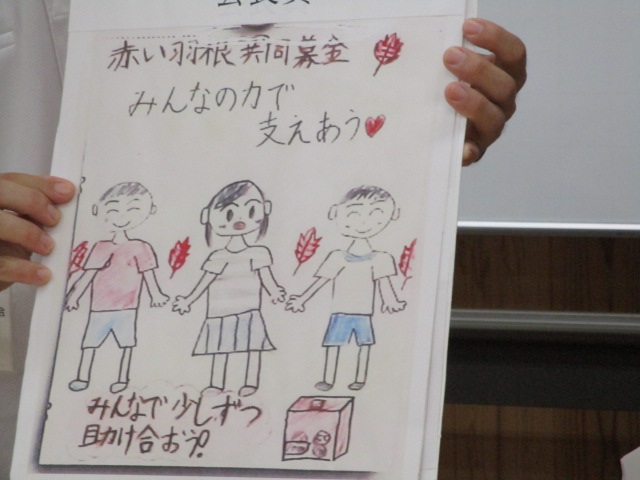 赤い羽根共同募金
みんなの力で
支えあう
みんなで少しずつ
助け合おう!